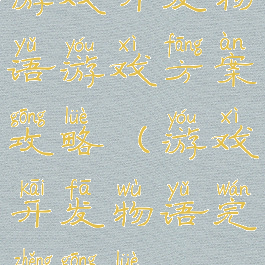 游戏开发物
yǔ yóu xì fāng àn
语游戏方案
gōng lüè yóu xì
攻略（游戏
kāi fā wù yǔ wán
开发物语完
zhěng gōng lüè